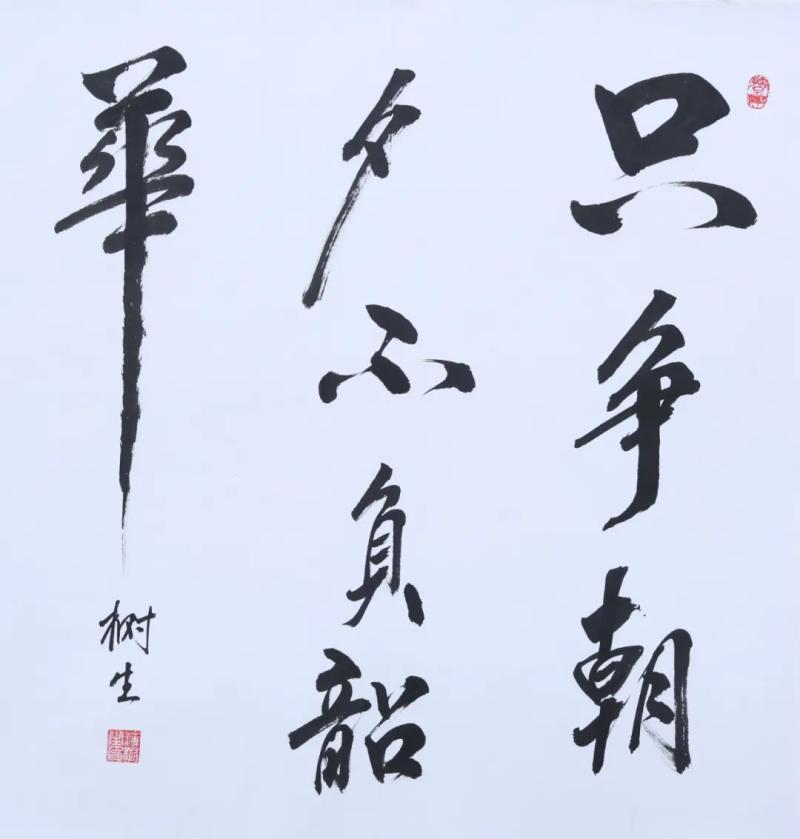 只争朝
夕不负韶
華
树生